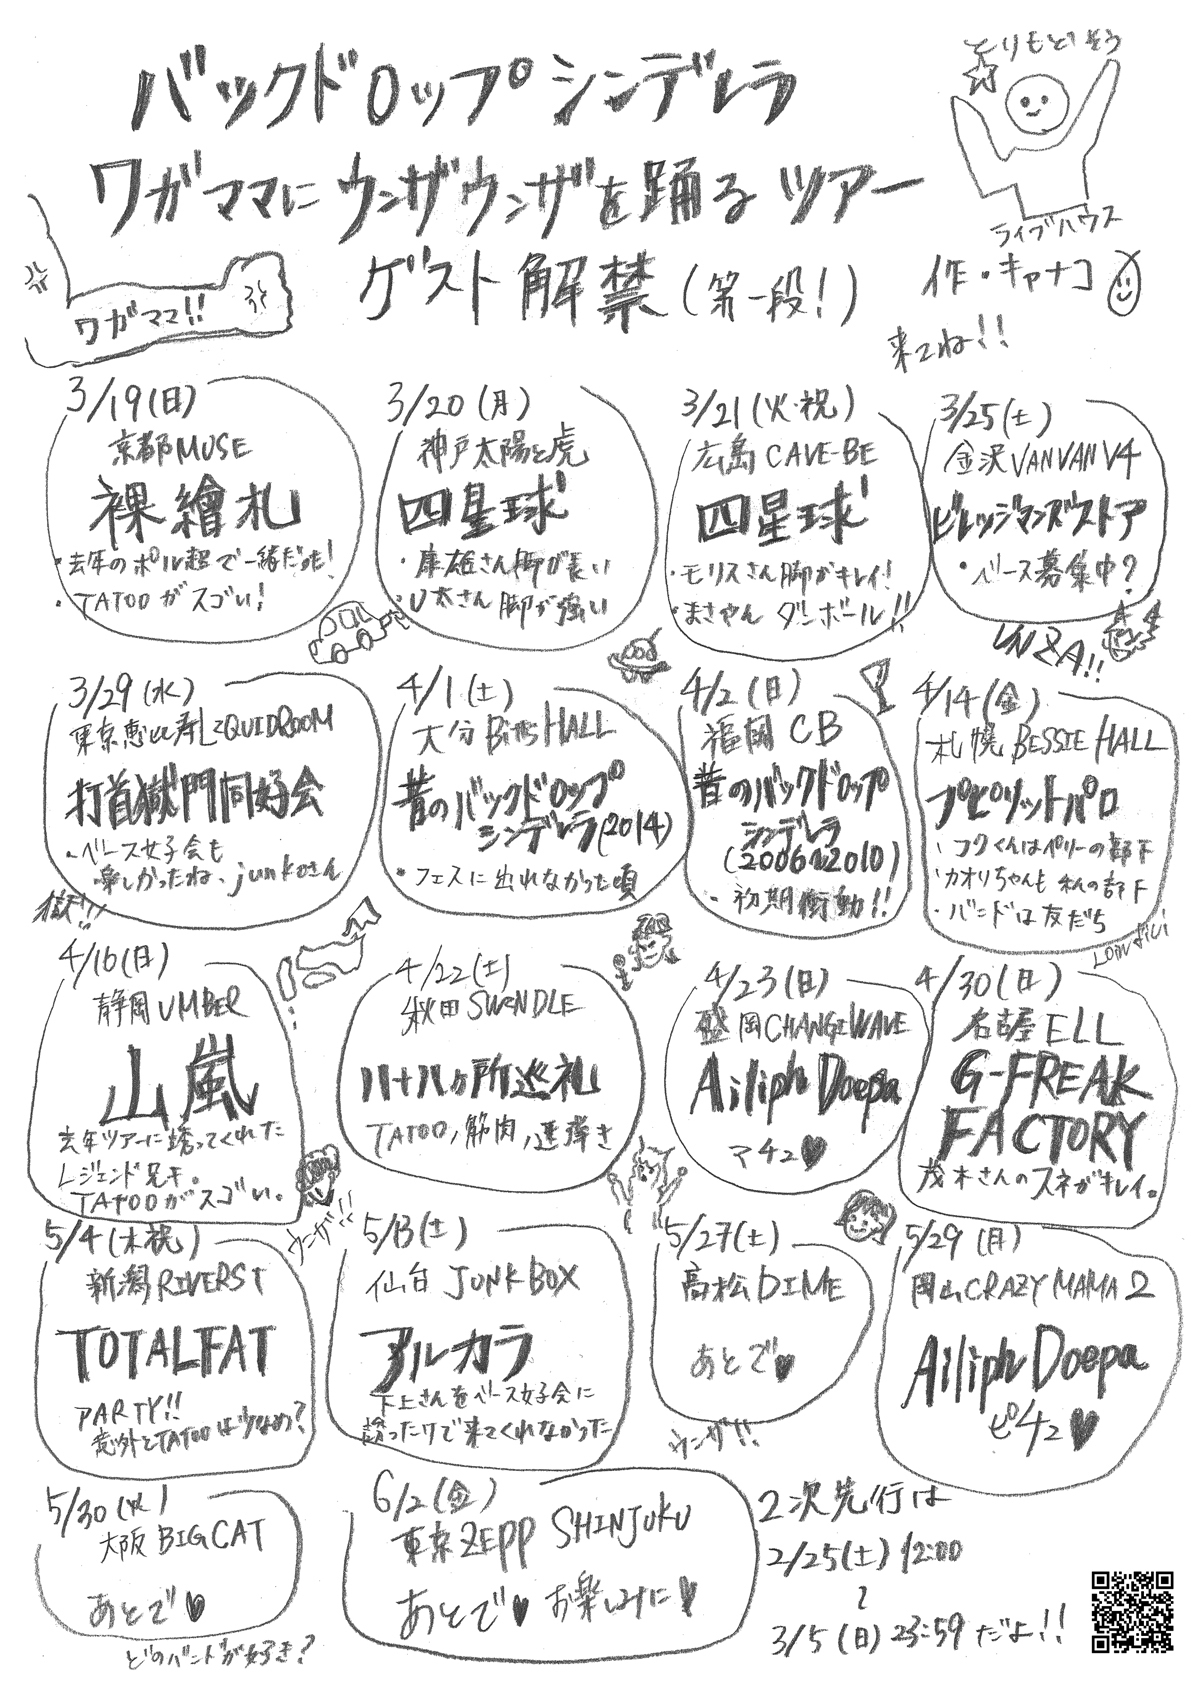 バックドロップシンデレラ
ワガママにウンザウンザを踊るツアー
ゲスト解禁(第一段!)
とりもどそう
ライブハウス
作・キャナコ
来てね!!
ワガママ!!
3/19(日)
京都MUSE
裸繪札
・去年のポルノ超で一緒だったも!
・TATOOがスゴい!
3/20(月)
神戸太陽と虎
四星球
・康雄さん脚が長い
・U太さん脚が強い
3/21(火・祝)
広島CAVE-BE
四星球
・モリスさん脚がキレイ!
・まさやんダンボール!!
3/25(土)
金沢VANVANV4
ビレッジマンズストア
・ベース募集中?
UNZA!!
3/29(水)
東京恵比寿LIQUIDROOM
打首獄門同好会
・ベース女子会も
楽しかったね、junkoさん
獄!!
4/1(土)
大分BittsHALL
昔のバックドロップ
シンデレラ(2014)
・フェスに出れなかった頃
4/2(日)
福岡CB
昔のバックドロップ
シンデレラ
(2006~2010)
・初期衝動!!
4/14(金)
札幌BESSIE HALL
プピリットパロ
・コウくんはペリーの部下
・カオリちゃんも私の部下
・バンドは友だち
4/16(日)
静岡UMBER
山嵐
去年ツアーに誘ってくれた
レジェンド兄キ。
TATOOがスゴい。
ウンザ!!
4/22(土)
秋田SWINDLE
八十八ヶ所巡礼
TATOO,筋肉,速弾き
4/23(日)
盛岡CHANGEWAVE
Ailiph Doepa
アチュ♥
4/30(日)
名古屋ELL
G-FREAK
FACTORY
茂木さんのスネがキレイ。
5/4(木祝)
新潟RIVERST
TOTALFAT
PARTY!!
意外とTATOOは少なめ?
5/13(土)
仙台 JUNKBOX
アルカラ
下上さんをベース女子会に
誘ったけど来てくれなかった
5/27(土)
高松DIME
あとで♥
ウンザ!!
5/29(月)
岡山CRAZYMAMA2
Ailiph Doepa
ピチュ♥
5/30(火)
大阪BIGCAT
あとで♥
どのバンドが好き?
6/2(金)
東京ZEPP SHINJUKU
あとで♥お楽しみに♥
2次先行は
2/25(土)12:00
~
3/5(日)23:59だよ!!